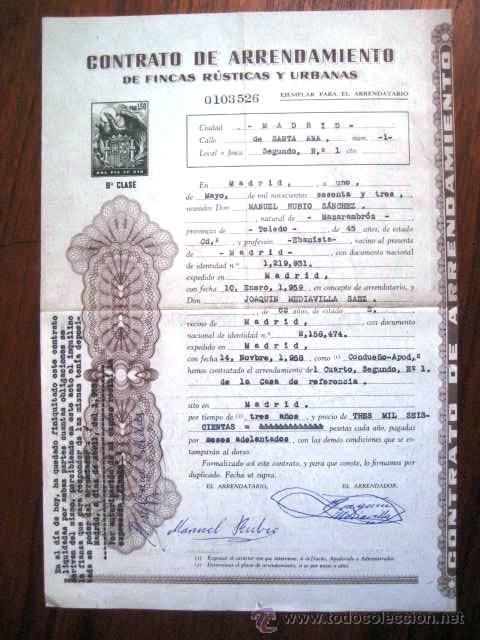 CONTRATO DE ARRENDAMIENTO
DE FINCAS RÚSTICAS Y URBANAS
0103526
EJEMPLAR PARA EL ARRENDATARIO
PTAS 1,50
8ª CLASE
Ciudad - MADRID -
Calle de SANTA ANA, núm. -1-
Local o finca Segundo, N.º 1 cto.
En Madrid, a uno,
de Mayo, de mil novecientos sesenta y tres,
reunidos Don MANUEL RUBIO SÁNCHEZ.
, natural de - Mazarambróz -
provincia de - Toledo - de 45 años, de estado
Cd,º y profesión -Ebanista-, vecino al presente
de - Madrid - con documento nacional
de identidad n.º 1,219,931.
expedido en Madrid,
con fecha 10, Enero, 1,959, en concepto de arrendatario, y
Don JOAQUIN MEDIAVILLA SAEZ.
de 62 años, de estado S.
vecino de Madrid, con documento
nacional de identidad n.º 2,156,474.
expedido en Madrid,
con fecha 14, Novbre, 1,958, como (1) Condueño-Apod,º
hemos contratado el arrendamiento del Cuarto, Segundo, Nº 1.
de la Casa de referencia.
sito en Madrid.
por tiempo de (2) tres años y precio de TRES MIL SEIS-
CIENTAS = pesetas cada año, pagadas
por meses adelantados, con las demás condiciones que se es-
tamparán al dorso.
Formalizado así este contrato, y para que conste, lo firmamos por
duplicado. Fecha ut supra.
EL ARRENDATARIO,
EL ARRENDADOR,
Manuel Rubio
Joaquin Mediavilla
(1) Expresar el carácter con que interviene, si de Dueño, Apoderado o Administrador.
(2) Determinar el plazo de arrendamiento, si es por meses o años.
CONTRATO DE ARRENDAMIENTO
En el día de hoy, ha quedado finiquitado este contrato
liquidadas por ambas partes cuantas obligaciones se
deriven del mismo y recibiendo en este acto el inquilino
la fianza que para responder de las mismas tenía deposi-
tada en poder del
www.todocoleccion.net